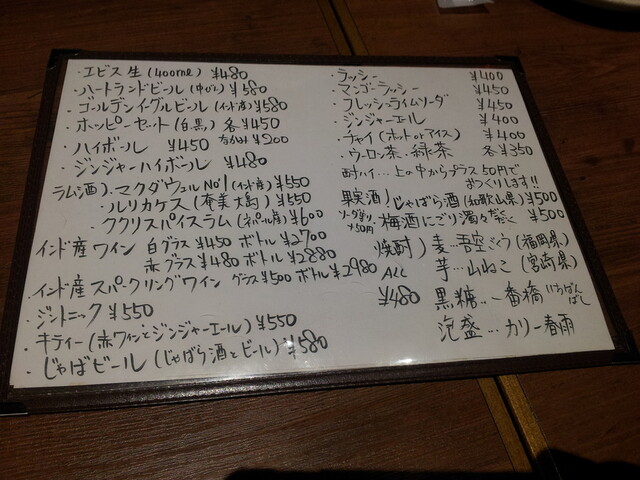 ・エビス生(400ml) ¥480
・ハートランドビール(中びん)¥580
・ゴールデンイーグルビール(インド産)¥580
・ホッピーセット(白黒)各¥450
・ハイボール ¥450 なかみ¥200
・ジンジャーハイボール ¥480
ラム酒)・マクダウェルNo1(インド産)¥550
・ルリカケス(奄美大島)¥550
・ククリスパイスラム(ネパール産)¥600
インド産ワイン 白グラス¥450 ボトル¥2700
赤グラス¥480 ボトル¥2880
・インド産スパークリングワイン グラス¥500 ボトル¥2980
・ジントニック ¥550
・キティー(赤ワインとジンジャーエール)¥550
・じゃばビール(じゃばら酒とビール)¥580
・ラッシー ¥400
・マンゴーラッシー ¥450
・フレッシュライムソーダ ¥450
・ジンジャーエール ¥400
・チャイ(ホットorアイス) ¥400
・ウーロン茶・緑茶 各¥350
酎ハイ…上の中からプラス50円で
おつくりします!!
果実酒!じゃばら酒(和歌山県)¥500
ソーダ割り+50円 梅酒にごり ¥500
焼酎)麦…吾空ごくう(福岡県)
ALL ¥480
芋…山ねこ(宮崎県)
黒糖…一番橋 いちばんばし
泡盛…カリー春雨